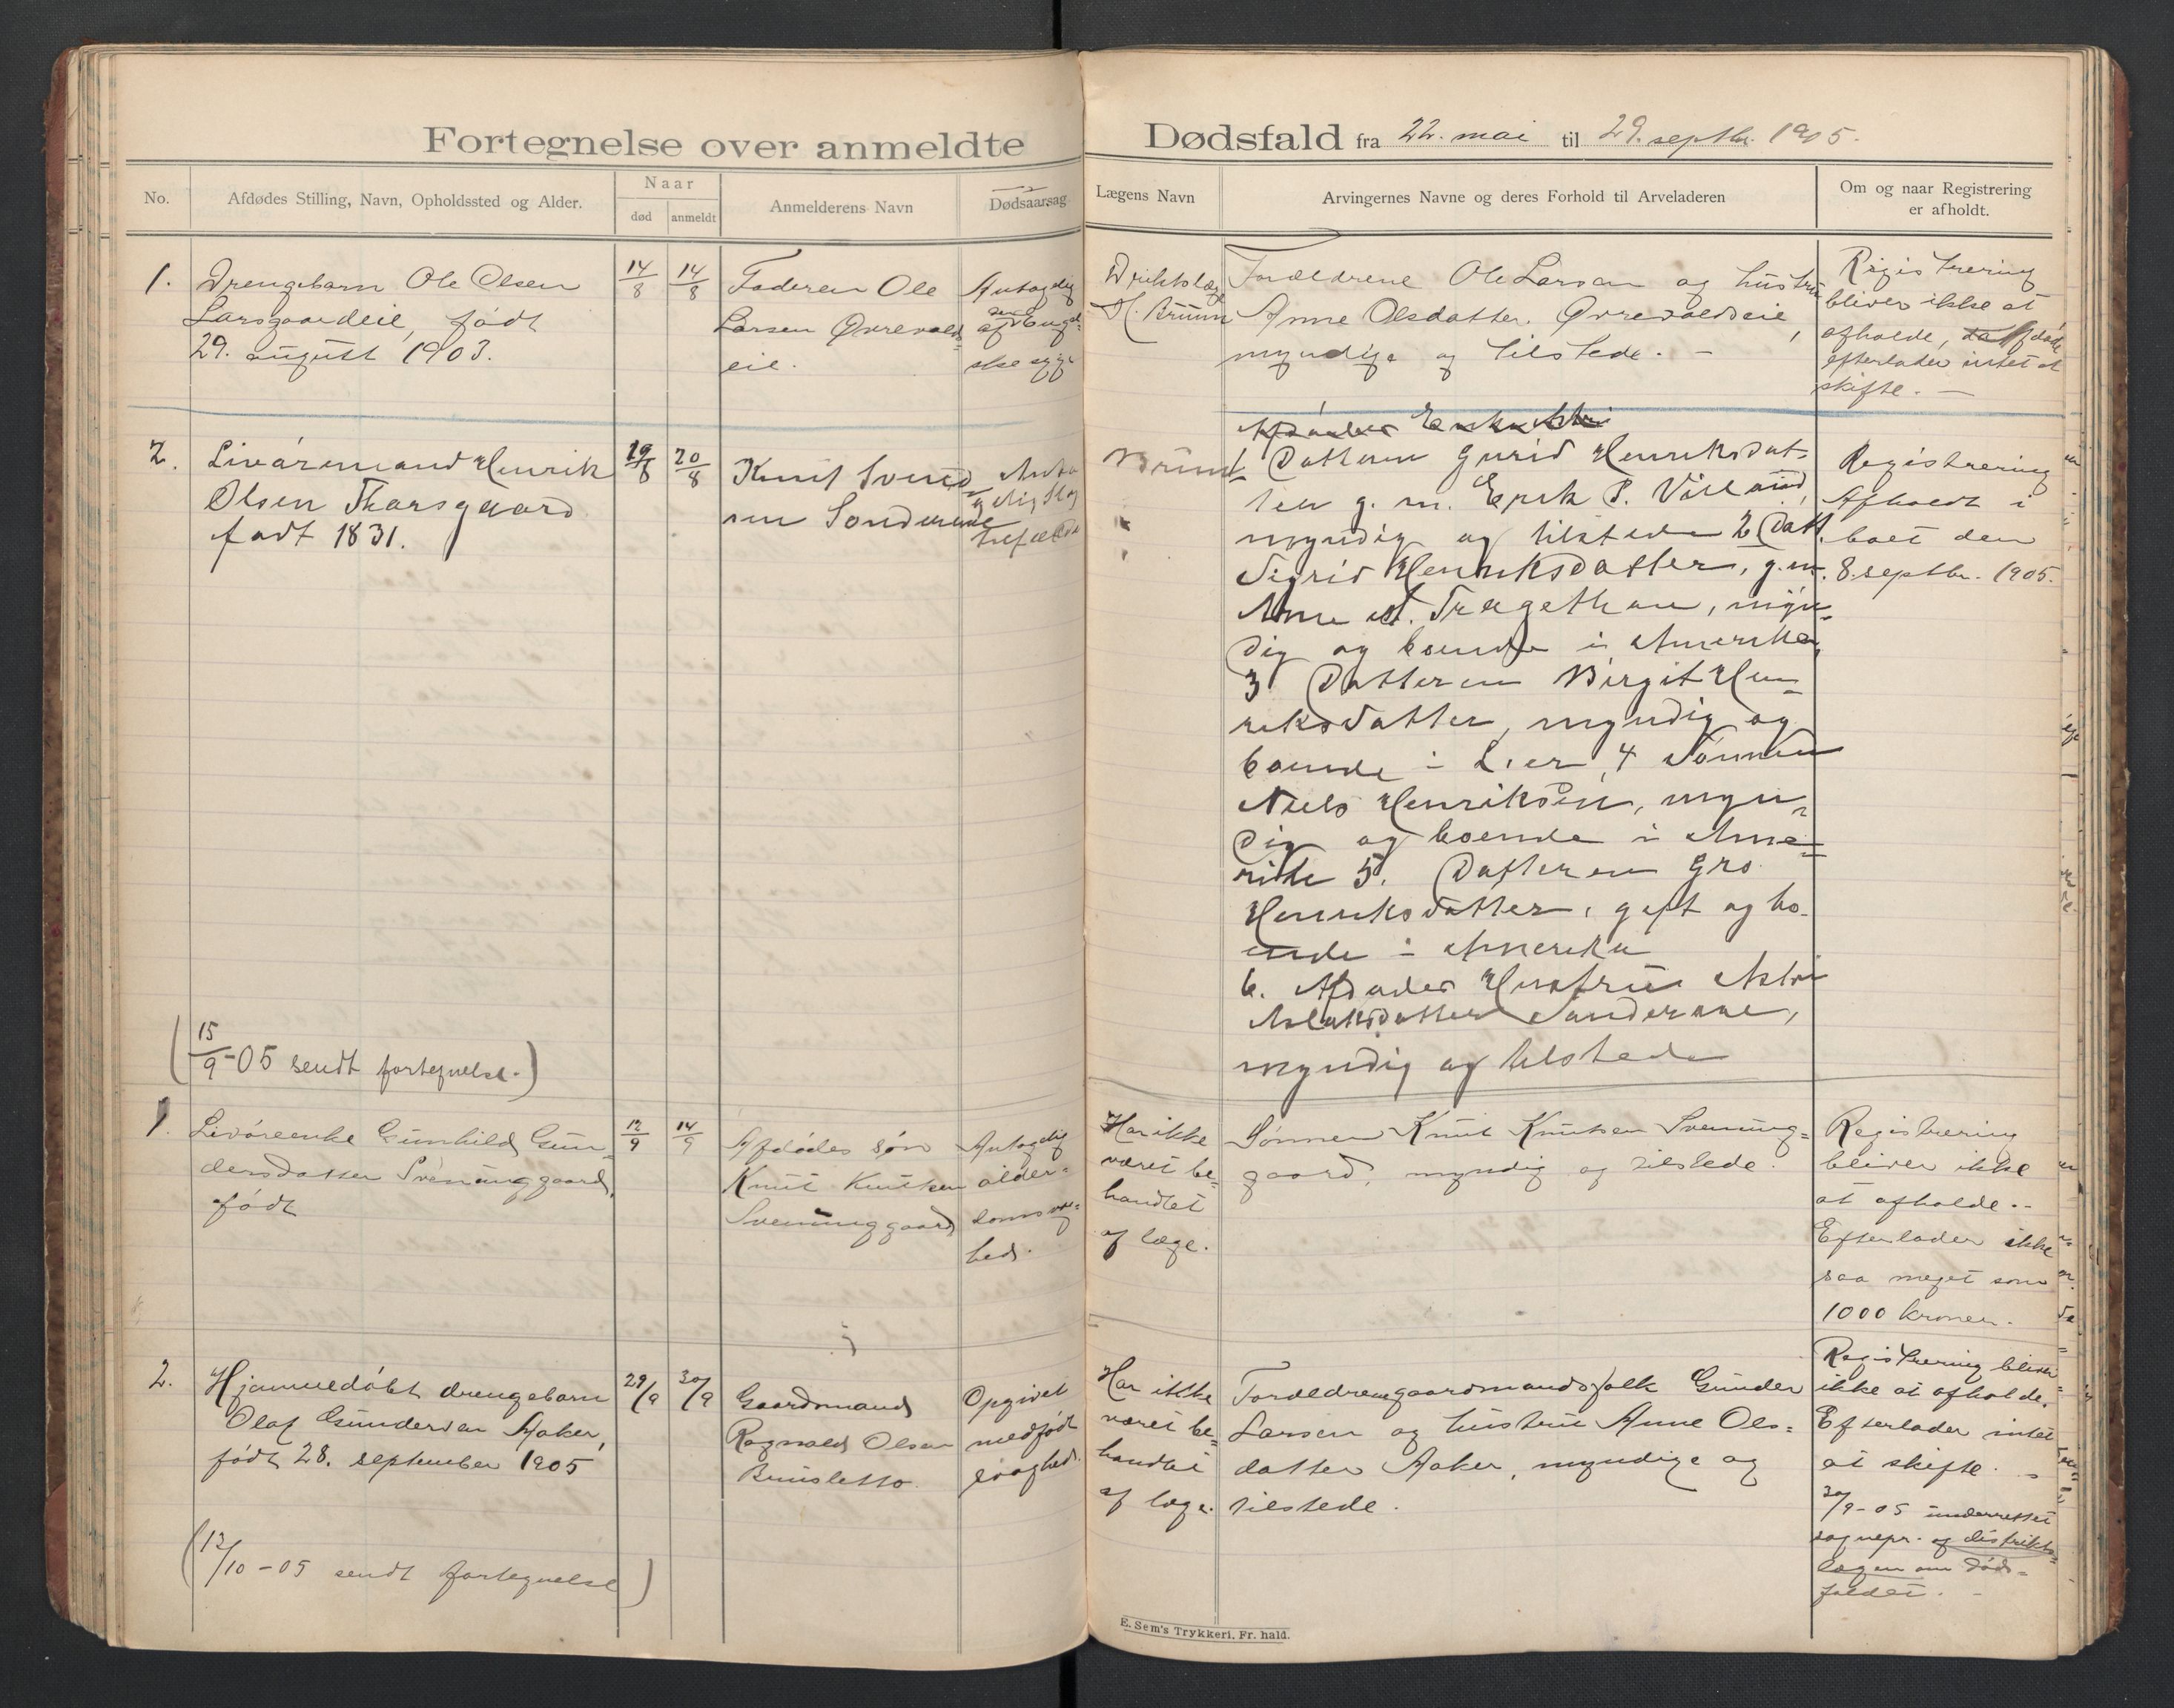 Fortegnelse over anmeldte
Dødsfald fra 22. mai til 29. septbr. 1905.
No.
Afdødes Stilling, Navn, Opholdssted og Alder.
Naar
død
anmeldt
Anmelderens Navn
Dødsaarsag
Lægens Navn
Arvingernes Navne og deres Forhold til Arveladeren
Om og naar Registrering
er afholdt.
1.
Drengebarn Ole Olsen
Larsgaardeie, født
29. august 1903.
14/8
14/8
Faderen Ole
Larsen Øvrevolds=
eie.
Antagelig
af engel=
ske syge
Distriktslæge
H. Bruun
Forældrene Ole Larsen og hustru
Anne Olsdatter Øvrevoldseie,
myndige og tilstede. -
Registrering
bliver ikke at
afholde, da afdøde
efterlader intet at
skifte. -
2.
Livøremand Henrik
Olsen Tharsgaard
født 1831.
19/8
20/8
Knut Svend
sen Sonderene
Anta
gelig Slag
tilfælde
Bruun
Afdødes Enke
Datteren Gurid Henriksdat-
ter g. m. Erik P. Villand,
myndig og tilstede 2 Datt.
Sigrid Henriksdatter, g.m.
Arne A. Trægethon, myn=
dig og boende i Amerika,
3 Datteren Birgit Hen=
riksdatter, myndig og
boende i Lier, 4 Sønnen
Niels Henriksen, myn=
dig og boende i Ame=
rika 5. Datteren Gro
Henriksdatter, gift og bo-
ende i Amerika
6. Afdødes Hustru Astri
Aslaksdatter Sanderaae,
myndig og tilstede
Registrering
Afholdt i
boet den
8. septbr. 1905.
(15/9-05 sendt fortegnelse.)
1.
Livøreenke Gunhild Gun=
dersdatter Svenunggaard,
født
12/9
14/9
Afdødes søn
Knut Knutsen
Svenunggaard
Antagelig
alder=
domssvag=
hed.
Har ikke
været be=
handlet
af læge.
Sønnen Knut Knutsen Svenung=
gaard, myndig og tilstede.
Registrering
bliver ikke
at afholde.-
Efterlader ikke
saa meget som
1000 kroner.
2.
Hjemmedøbt drengebarn
Olaf Gundersen Aaker,
født 28. september 1905
29/9
30/9
Gaardmand
Ragnvald Olsen
Bruusletto
Opgivet
medfødt
svaghed.
Har ikke
været be=
handlet
af læge.
Forældrene gaardmandsfolk Gunder
Larsen og hustru Anne Ols=
datter Aaker, myndige og
tilstede.
Registrering bliver
ikke at afholde.
Efterlader intet
at skifte. -
30/9-05 underrettet
sognepr. og distrikts=
lægen om døds=
faldet. -
(12/10-05 sendt fortegnelse)
E. Sem's Trykkeri, Fr. hald.